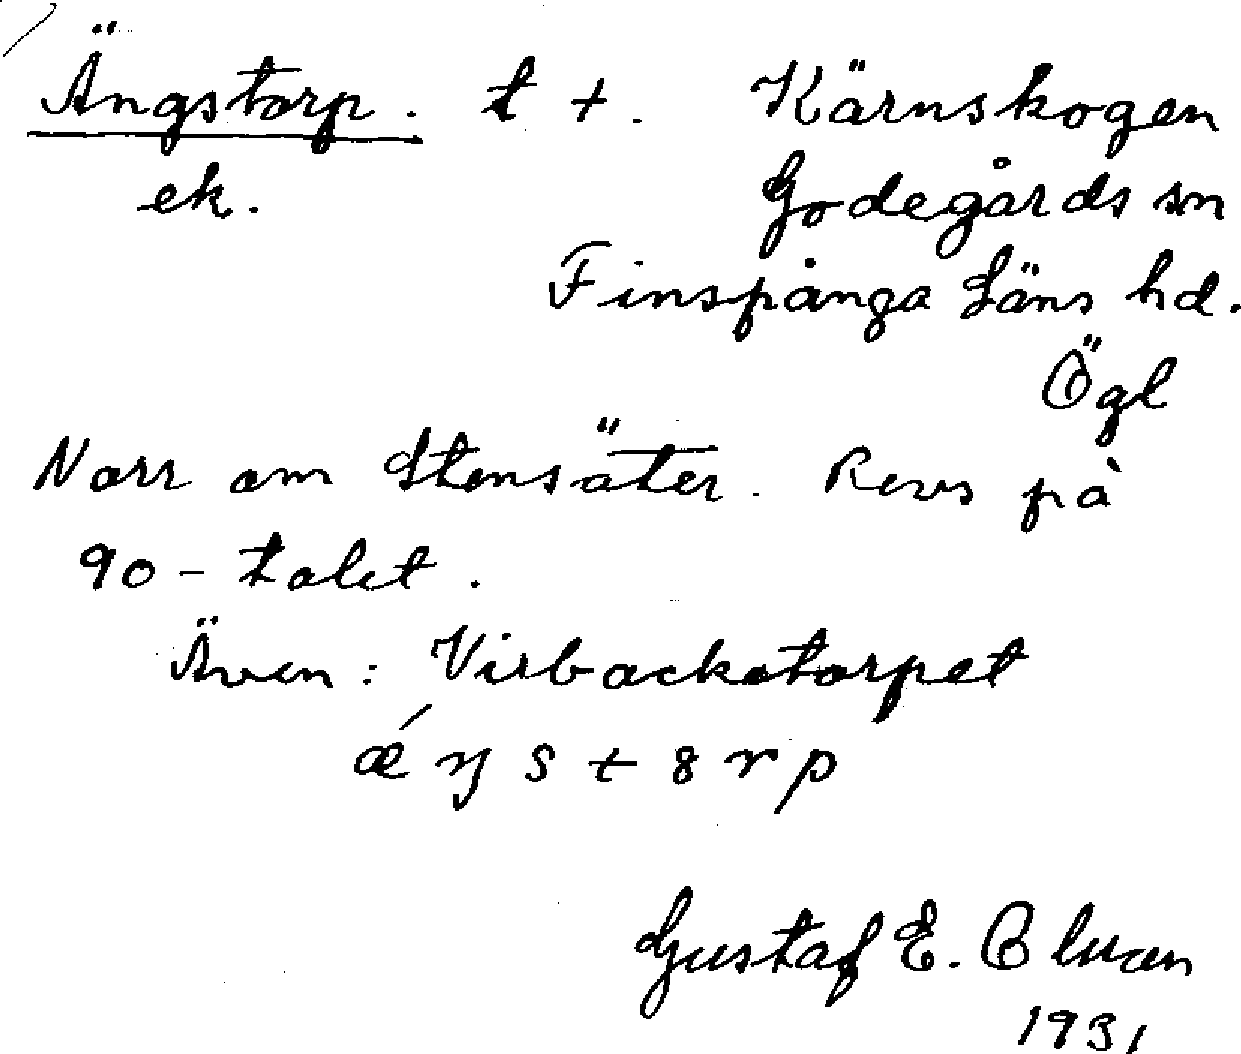 Ängstorp. t +. Kärnskogen
ek. Godegårds sn
Finspånga Läns hd.
Ögl
Norr om Stensäter. Revs på
90-talet.
Även: Virbacketorpet
ǽŋst8rp
Gustaf E. Olman
1931